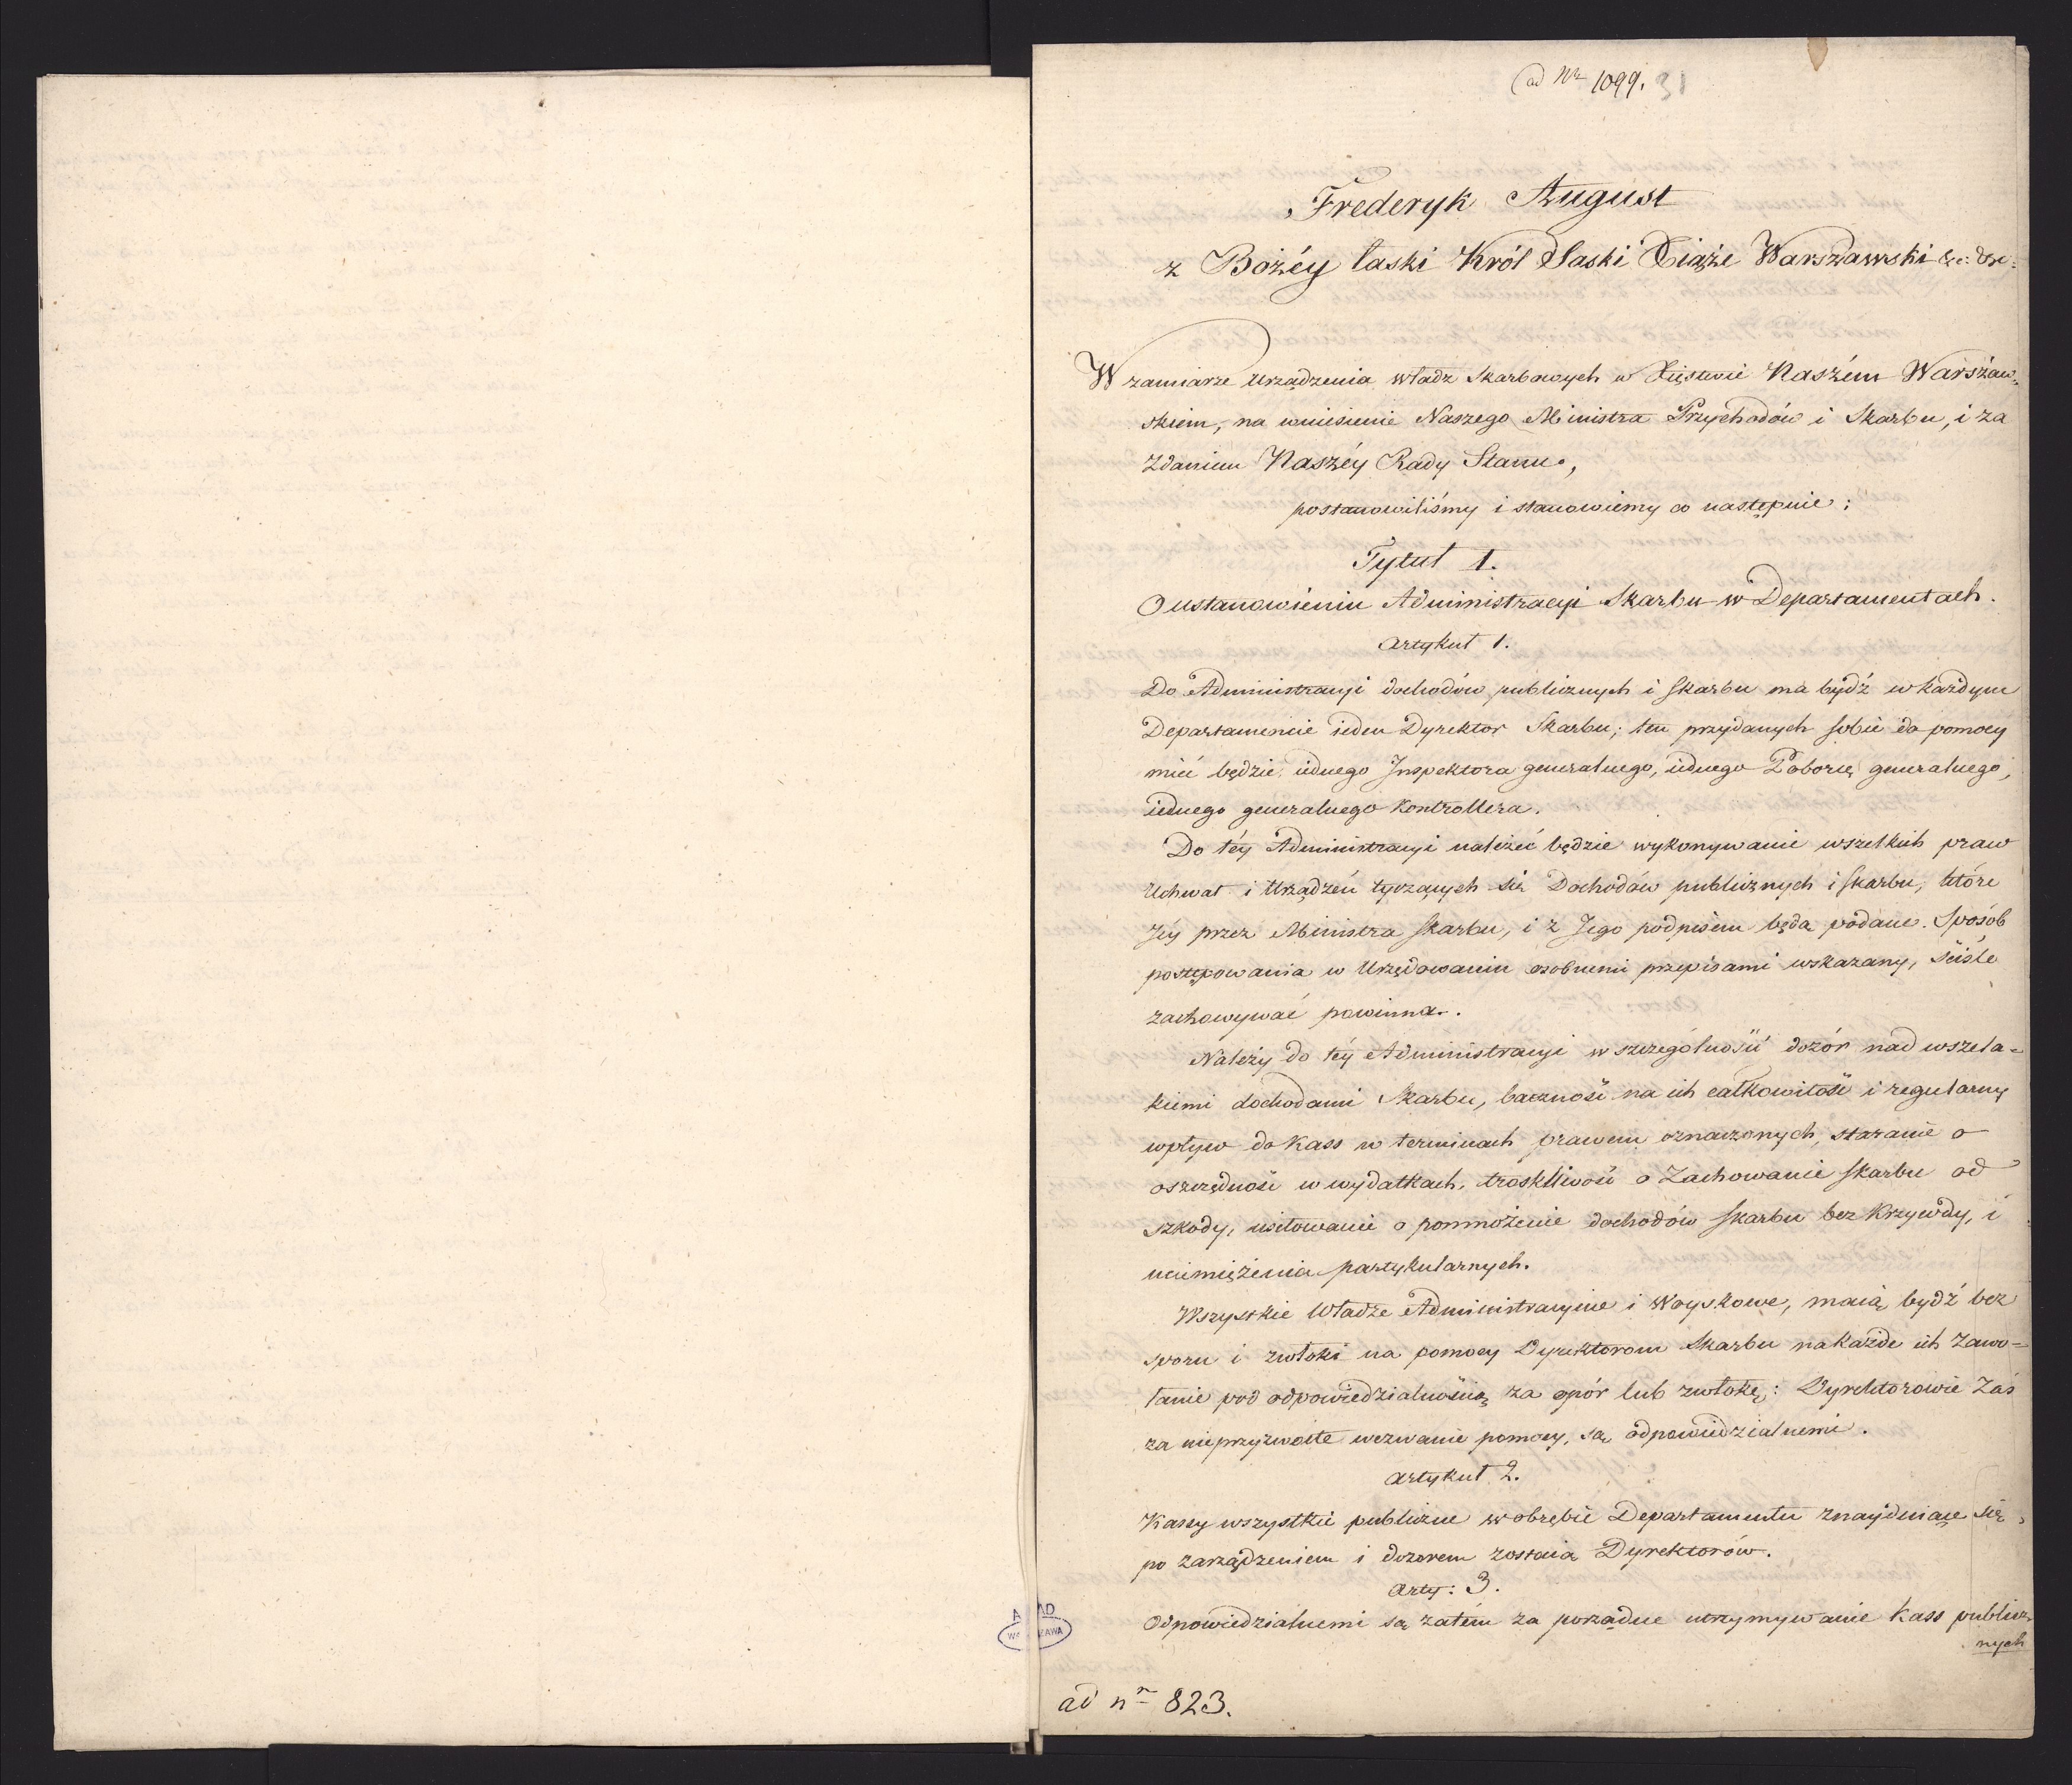 ad Nr 1099. 31
Frederyk August
z Bożéy łaski Król Saski Xiąże Warszawski &c: &c:
W zamiarze urządzenia władz Skarbowych w Xięstwie Naszém Warszaw„
skiem, na wniesienie Naszego Ministra Przychodów i Skarbu, i za
zdaniem Naszéy Rady Stanu,
postanowiliśmy i stanowiemy co następnie:
Tytuł 1.
O ustanowieniu Administracyi Skarbu w Departamentach.
Artykuł 1.
Do Administracyi dochodów publicznych i Skarbu ma bydź w każdym
Departamencie ieden Dyrektor Skarbu; ten przydanych sobie do pomocy
mieć będzie: iednego Inspektora generalnego, iednego Poborcę generalnego,
iednego generalnego Kontrollera.
Do téy Administracyi należeć będzie wykonywanie wszelkich praw
Uchwał i Urządzeń tyczących się Dochodów publicznych i Skarbu, które
Jéy przez Ministra Skarbu, i z Jego podpisem będą podane. Sposób
postępowania w Urzędowaniu osobnemi przepisami wskazany, ściśle
zachowywać powinna.
Należy do téy Administracyi w szczególności dozór nad wszela=
kiemi dochodami Skarbu, baczność na ich całkowitość i regularny
wpływ do Kass w terminach prawem oznaczonych, staranie o
oszczędność w wydatkach, troskliwość o Zachowanie Skarbu od
szkody, usiłowanie o pomnożenie dochodów Skarbu bez Krzywdy, i
uciemiężenia partykularnych.
Wszystkie Władze Administracyine i Woyskowe, maią bydź bez
sporu i zwłoki na pomocy Dyrektorom Skarbu na każde ich Zawo=
łanie pod odpowiedzialnością za opór lub zwłokę: Dyrektorowie Zaś
za nieprzyzwoite wezwanie pomocy, są odpowiedzialnemi.
Artykuł 2.
Kassy wszystkie publiczne w obrębie Departamentu znayduiące się,
po zarządzeniem i dozorem zostaią Dyrektorów.
Arty: 3.
Odpowiedzialnemi są zatém za porządne utrzymywanie Kass publicz„
nych
AGAD
WARSZAWA
ad nr 823.